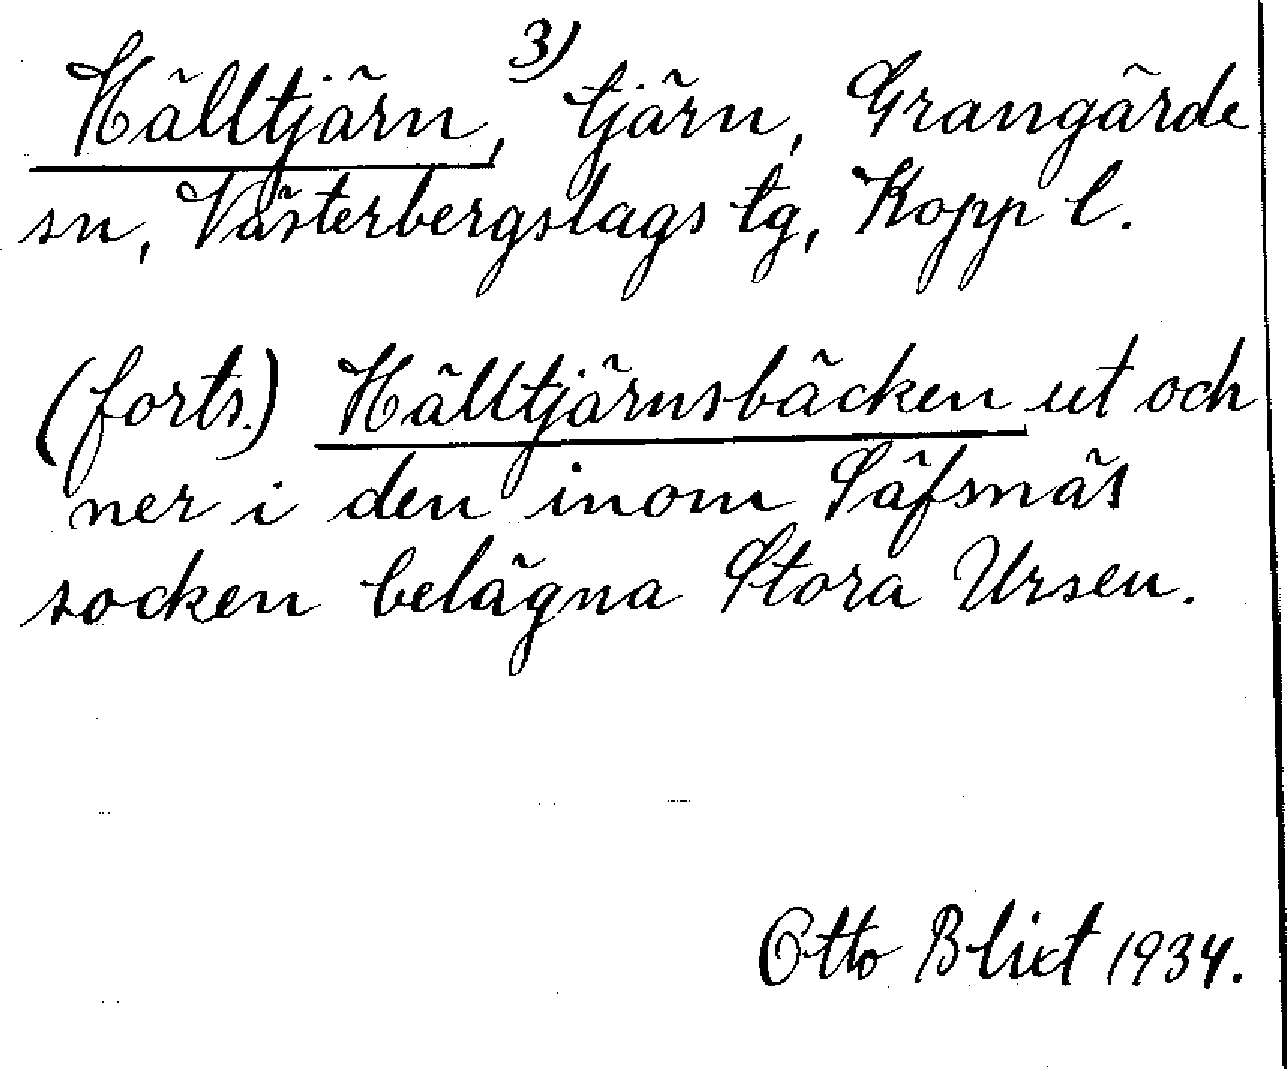 Hälltjärn, 3) tjärn, Grangärde
sn, Västerbergslags tg, Kopp l.
(forts.) Hälltjärnsbäcken ut och
ner i den inom Säfsnäs
socken belägna Stora Ursen.
Otto Blixt 1934.